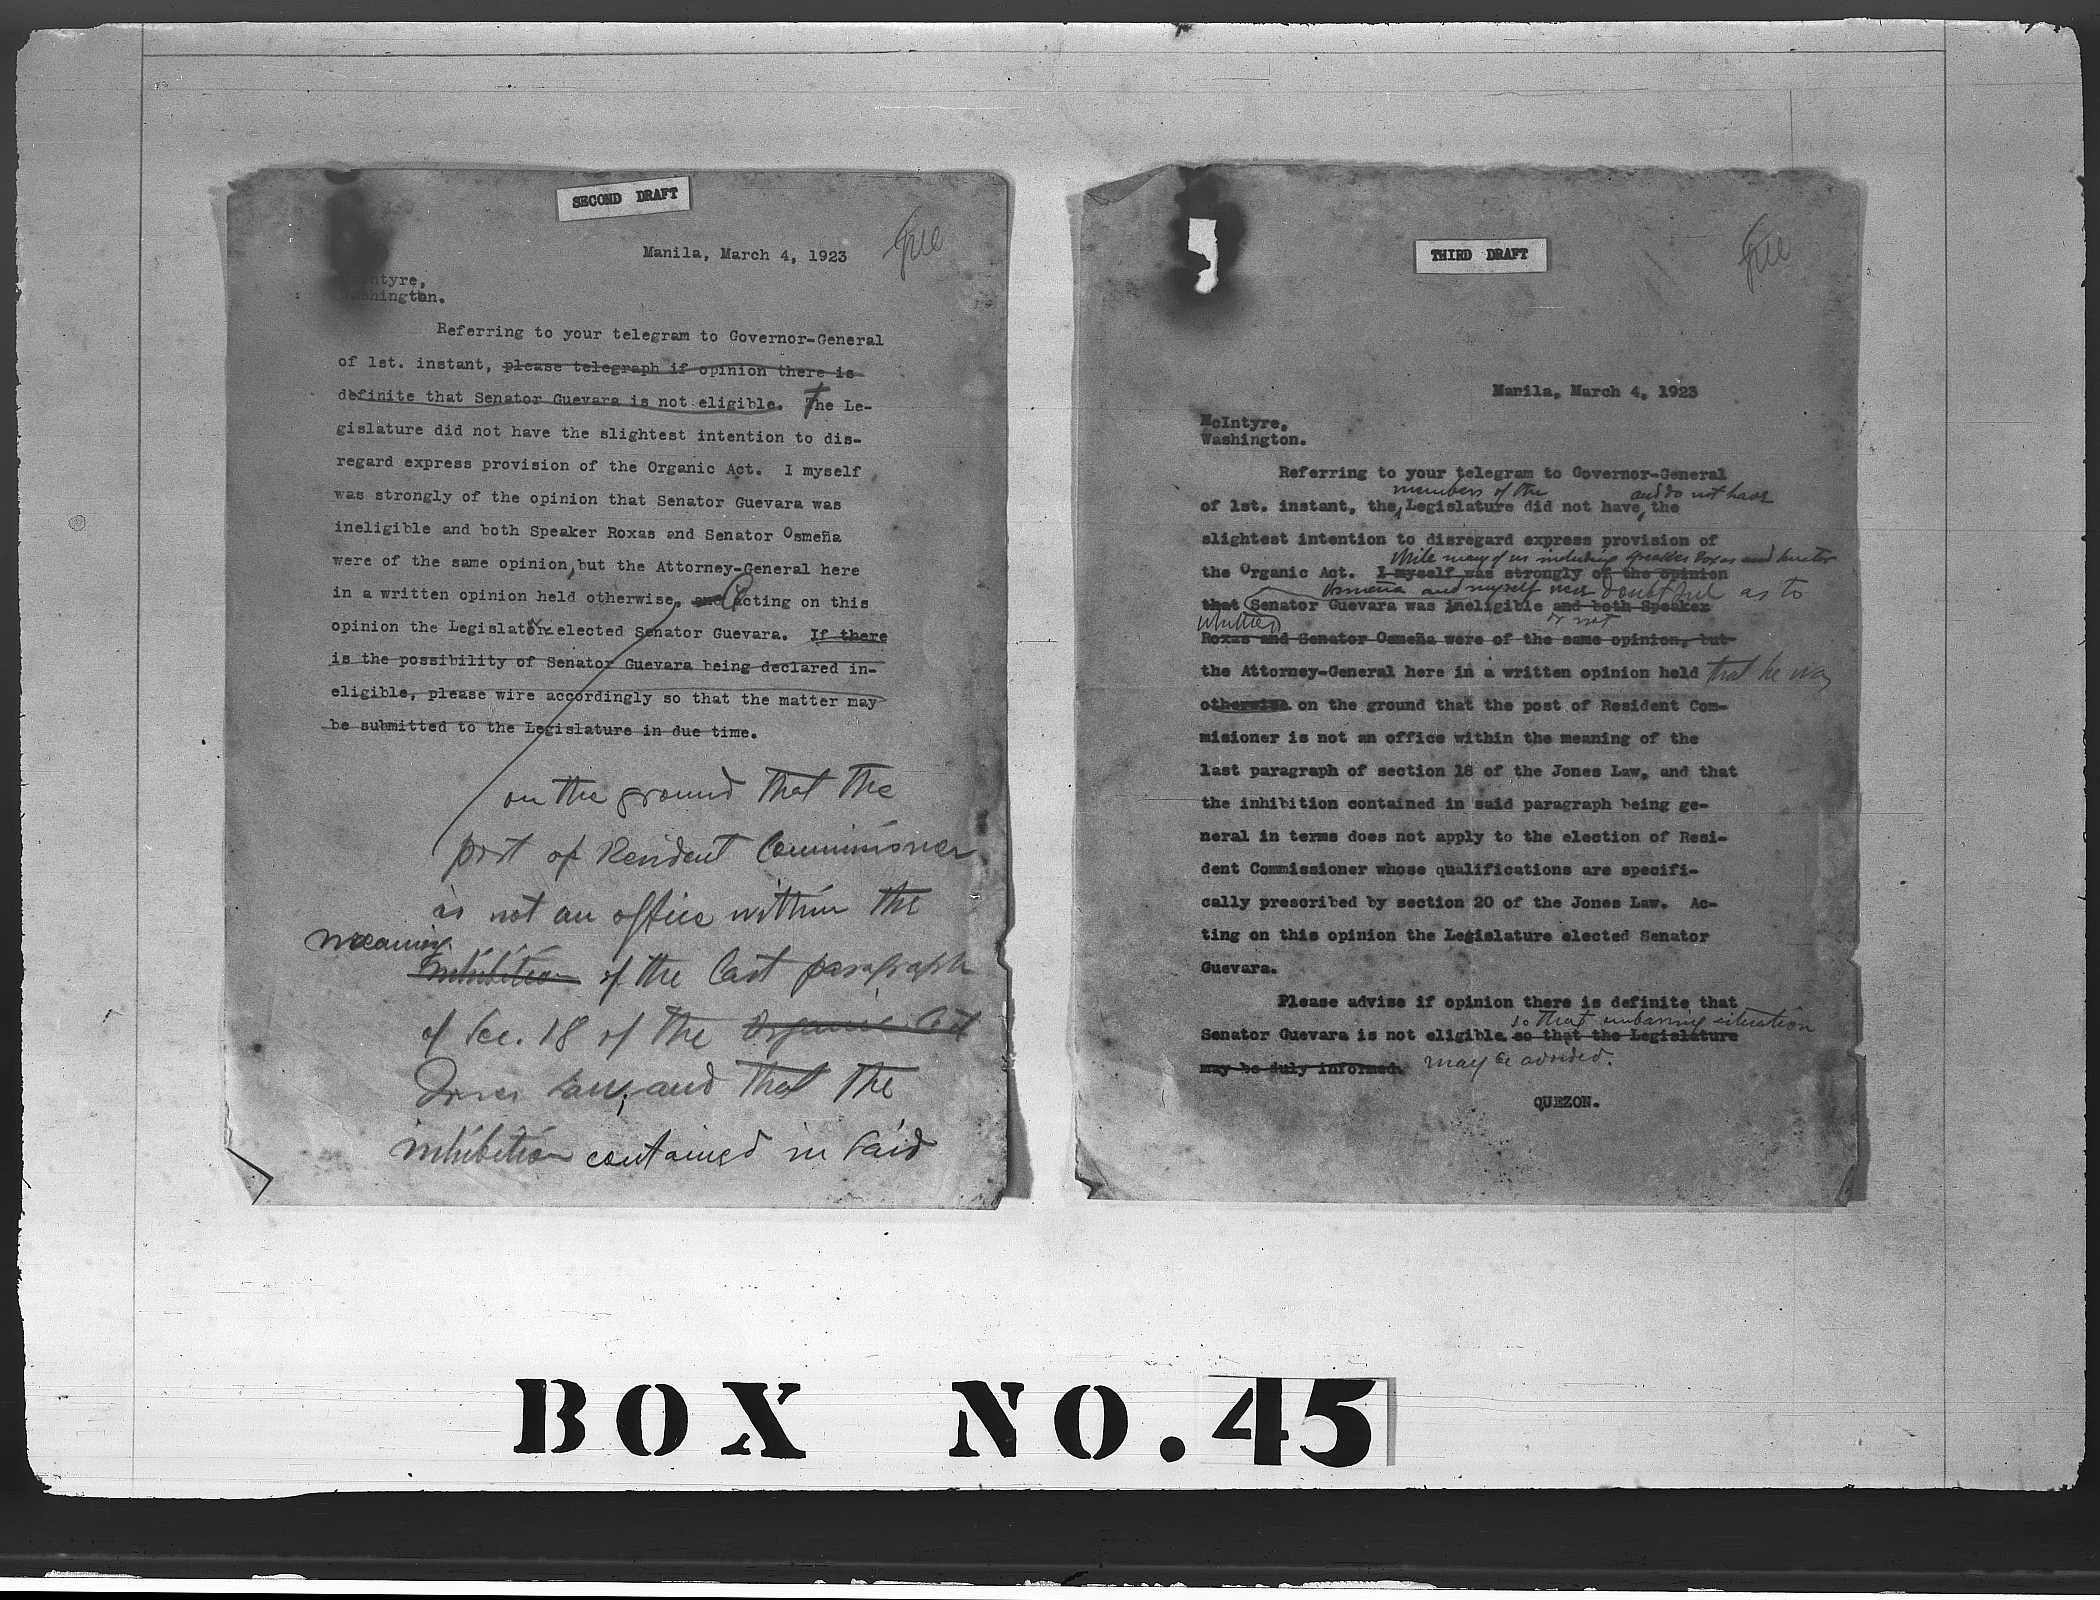 SECOND DRAFT
Manila, March 4, 1923
file
McIntyre,
Washington.
Referring to your telegram to Governor-General
of 1st. instant, please telegraph if opinion there is
definite that Senator Guevara is not eligible. The Le-
gislature did not have the slightest intention to dis-
regard express provision of the Organic Act. I myself
was strongly of the opinion that Senator Guevara was
ineligible and both Speaker Roxas and Senator Osmeña
were of the same opinion, but the Attorney-General here
in a written opinion held otherwise, and Acting on this
opinion the Legislature elected Senator Guevara. If there
is the possibility of Senator Guevara being declared in-
eligible, please wire accordingly so that the matter may
be submitted to the Legislature in due time.
on the ground that the
post of Resident Commissioner
is not an office within the
meaning
inhibition of the last paragraph
of Sec. 18 of the Organic Act
Jones Law, and that the
inhibition contained in said
THIRD DRAFT
file
Manila, March 4, 1923
McIntyre,
Washington.
Referring to your telegram to Governor-General
members of the and do not have
of 1st. instant, the Legislature did not have, the
slightest intention to disregard express provision of
While many of us including Speaker Roxas and Senator
the Organic Act. I myself was strongly of the opinion
Osmeña and myself were doubtful as to
that Senator Guevara was ineligible and both Speaker
whether or not
Roxas and Senator Osmeña were of the same opinion, but
the Attorney-General here in a written opinion held that he was
otherwise on the ground that the post of Resident Com-
misioner is not an office within the meaning of the
last paragraph of section 18 of the Jones Law, and that
the inhibition contained in said paragraph being ge-
neral in terms does not apply to the election of Resi-
dent Commissioner whose qualifications are specifi-
cally prescribed by section 20 of the Jones Law. Ac-
ting on this opinion the Legislature elected Senator
Guevara.
Please advise if opinion there is definite that
so that situation
Senator Guevara is not eligible so that the Legislature
may be duly informed. may be avoided.
QUEZON.
BOX NO. 45